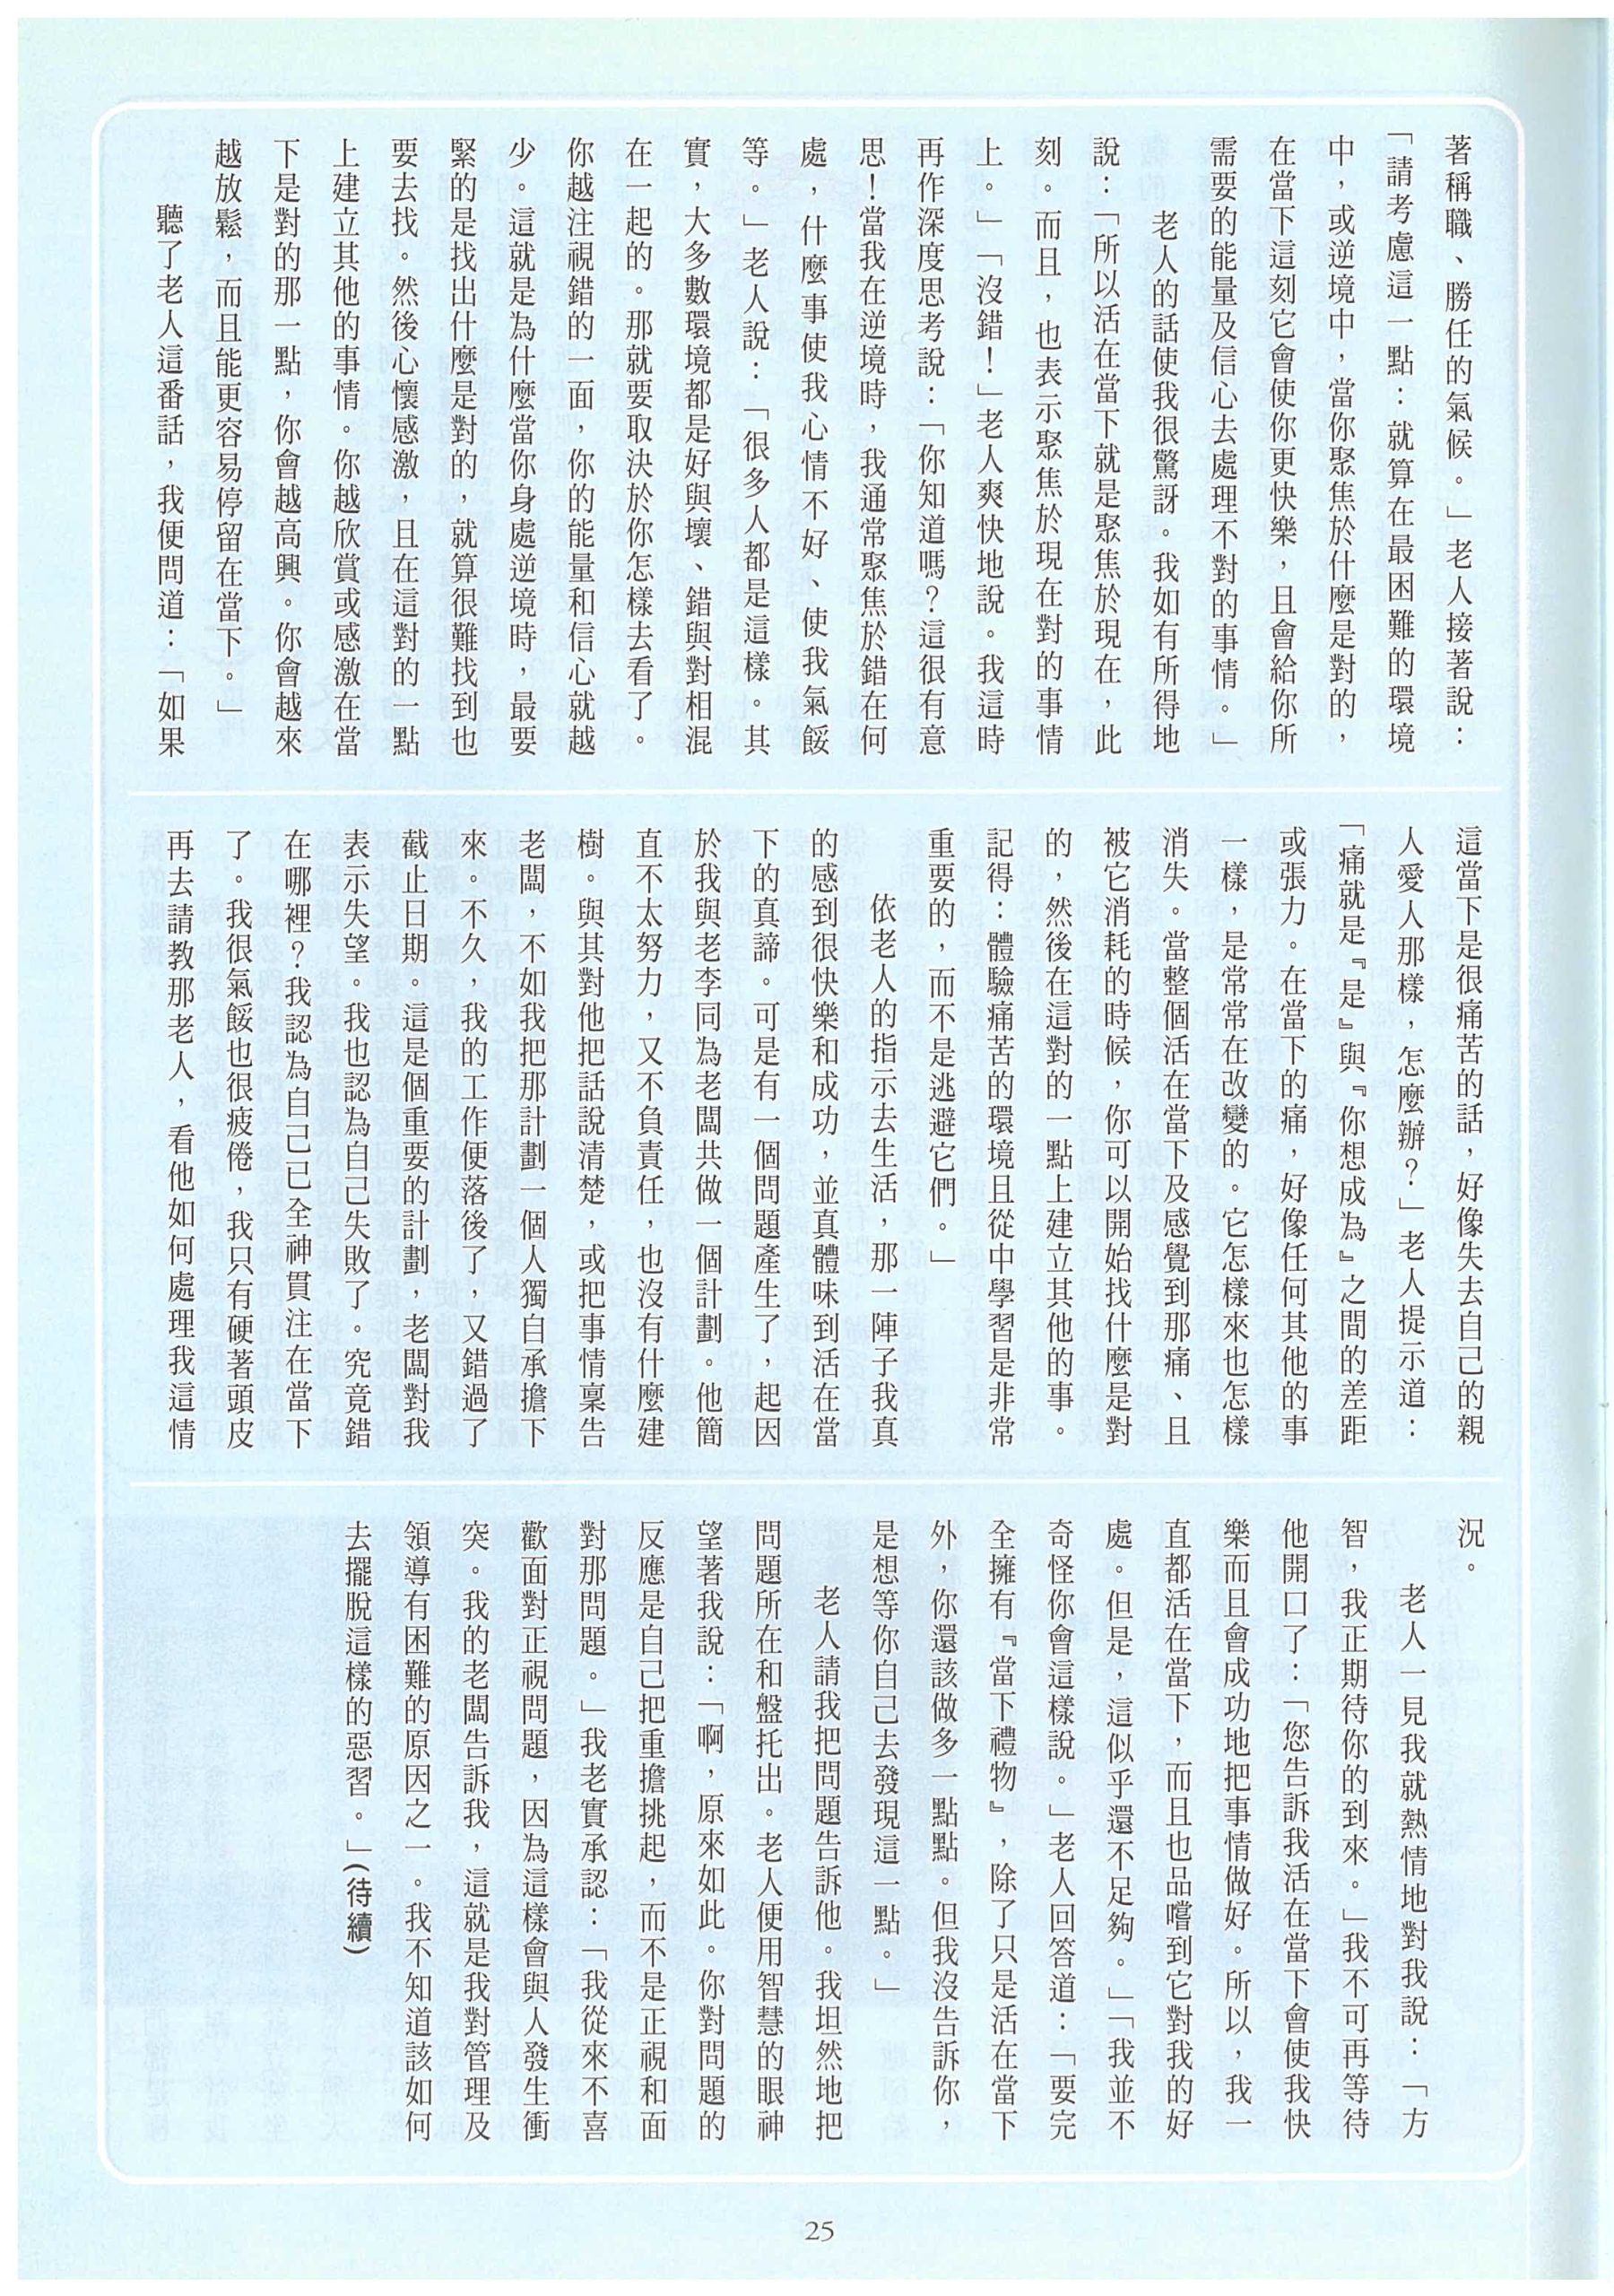 著稱職、勝任的氣候。」老人接著說：
「請考慮這一點：就算在最困難的環境
中，或逆境中，當你聚焦於什麼是對的，
在當下這刻它會使你更快樂，且會給你所
需要的能量及信心去處理不對的事情。」
老人的話使我很驚訝。我如有所得地
說：「所以活在當下就是聚焦於現在，此
刻。而且，也表示聚焦於現在對的事情
上。」「沒錯！」老人爽快地說。我這時
再作深度思考說：「你知道嗎？這很有意
思！當我在逆境時，我通常聚焦於錯在何
處，什麼事使我心情不好、使我氣餒
等。」老人說：「很多人都是這樣。其
實，大多數環境都是好與壞、錯與對相混
在一起的。那就要取決於你怎樣去看了。
你越注視錯的一面，你的能量和信心就越
少。這就是為什麼當你身處逆境時，最要
緊的是找出什麼是對的，就算很難找到也
要去找。然後心懷感激，且在這對的一點
上建立其他的事情。你越欣賞或感激在當
下是對的那一點，你會越高興。你會越來
越放鬆，而且能更容易停留在當下。」
聽了老人這番話，我便問道：「如果
這當下是很痛苦的話，好像失去自己的親
人愛人那樣，怎麼辦？」老人提示道：
「痛就是『是』與『你想成為』之間的差距
或張力。在當下的痛，好像任何其他的事
一樣，是常常在改變的。它怎樣來也怎樣
消失。當整個活在當下及感覺到那痛、且
被它消耗的時候，你可以開始找什麼是對
的，然後在這對的一點上建立其他的事。
記得：體驗痛苦的環境且從中學習是非常
重要的，而不是逃避它們。」
依老人的指示去生活，那一陣子我真
的感到很快樂和成功，並真體味到活在當
下的真諦。可是有一個問題產生了，起因
於我與老李同為老闆共做一個計劃。他簡
直不太努力，又不負責任，也沒有什麼建
樹。與其對他把話說清楚，或把事情稟告
老闆，不如我把那計劃一個人獨自承擔下
來。不久，我的工作便落後了，又錯過了
截止日期。這是個重要的計劃，老闆對我
表示失望。我也認為自己失敗了。究竟錯
在哪裡？我認為自己已全神貫注在當下
了。我很氣餒也很疲倦，我只有硬著頭皮
再去請教那老人，看他如何處理我這情
況。
老人一見我就熱情地對我說：「方
智，我正期待你的到來。」我不可再等待
他開口了：「您告訴我活在當下會使我快
樂而且會成功地把事情做好。所以，我一
直都活在當下，而且也品嚐到它對我的好
處。但是，這似乎還不足夠。」「我並不
奇怪你會這樣說。」老人回答道：「要完
全擁有『當下禮物』，除了只是活在當下
外，你還該做多一點點。但我沒告訴你，
是想等你自己去發現這一點。」
老人請我把問題告訴他。我坦然地把
問題所在和盤托出。老人便用智慧的眼神
望著我說：「啊，原來如此。你對問題的
反應是自己把重擔挑起，而不是正視和面
對那問題。」我老實承認：「我從來不喜
歡面對正視問題，因為這樣會與人發生衝
突。我的老闆告訴我，這就是我對管理及
領導有困難的原因之一。我不知道該如何
去擺脫這樣的惡習。」(待續)
25